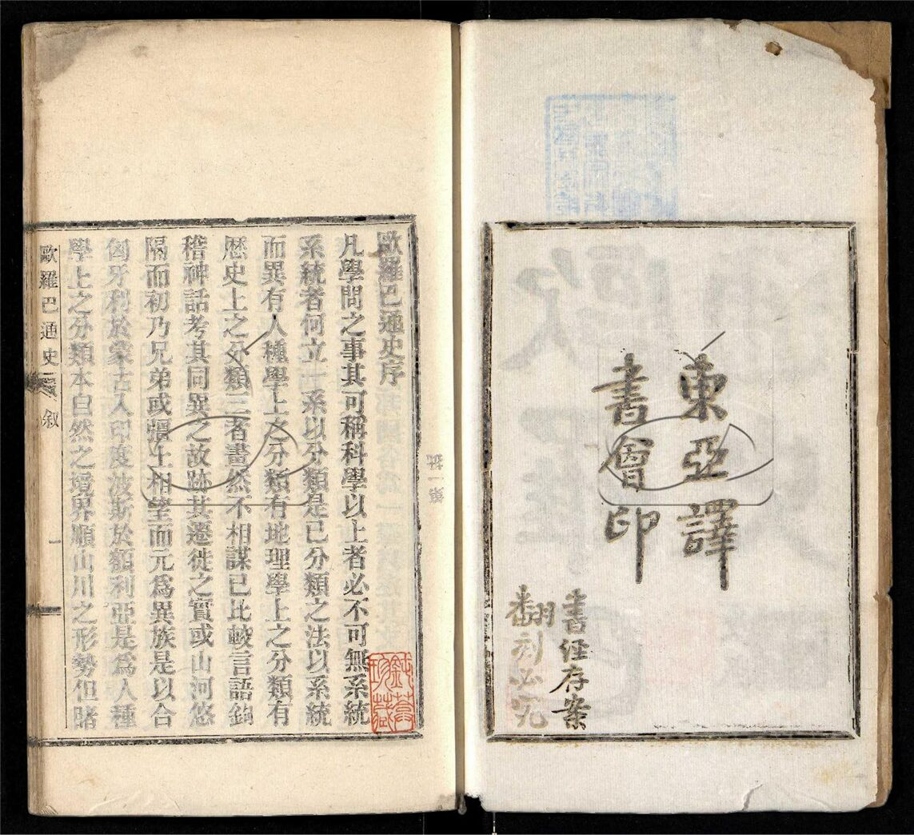 東亞譯
書會印
書經存案
翻刻必究
歐羅巴通史序
凡學問之事其可稱科學以上者必不可無系統
系統者何立一系以分類是已分類之法以系統
而異有人種學上之分類有地理學上之分類有
歷史上之分類三者畫然不相謀已比較言語鉤
稽神話考其同異之故跡其遷徙之實或山河悠
隔而初乃兄弟或疆土相望而元爲異族是以合
匈牙利於蒙古人印度波斯於額利亞是爲人種
學上之分類本自然之境界順山川之形勢但睹
歐羅巴通史 敘 一